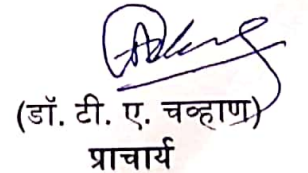 (डॉ. टी. ए. चव्हाण)
प्राचार्य